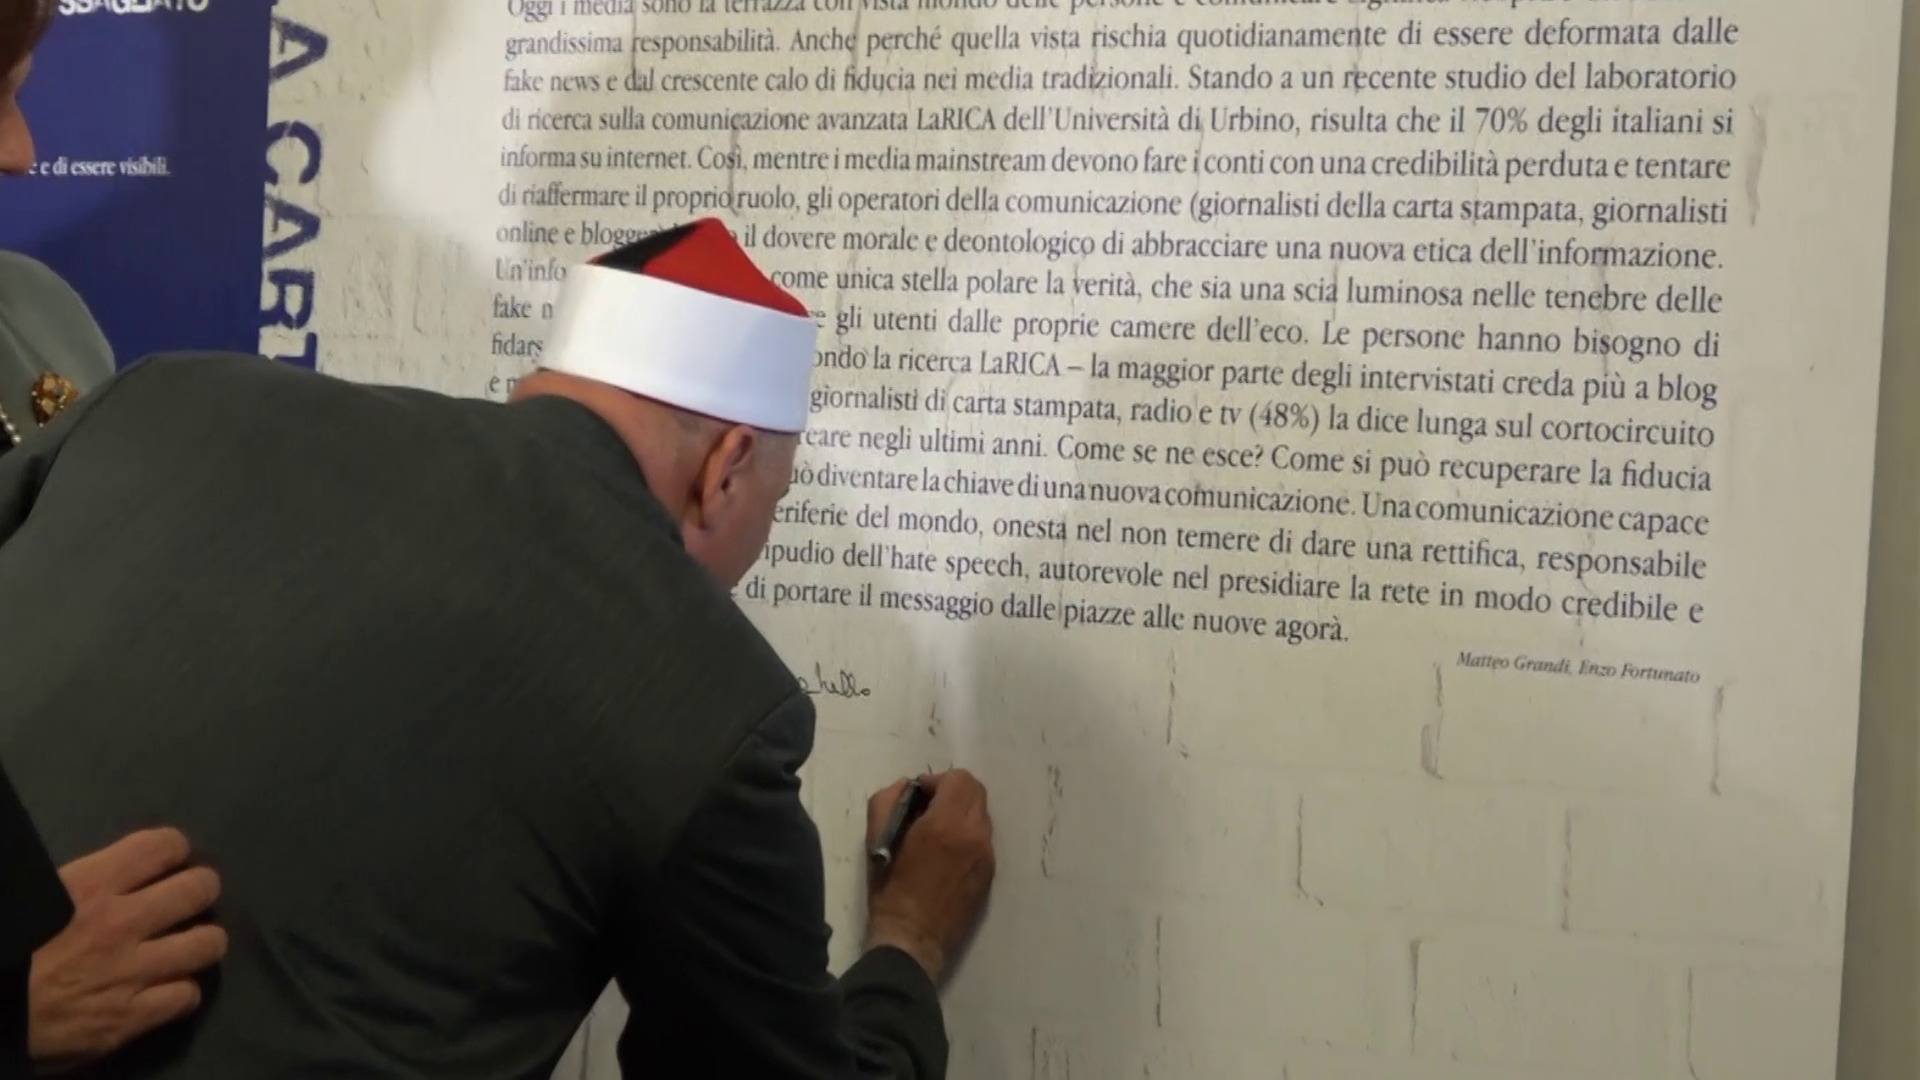 e di essere visibili.
A CART
Oggi i media sono la terrazza con vista mondo delle persone e comunicare significa
grandissima responsabilità. Anche perché quella vista rischia quotidianamente di essere deformata dalle
fake news e dal crescente calo di fiducia nei media tradizionali. Stando a un recente studio del laboratorio
di ricerca sulla comunicazione avanzata LaRICA dell'Università di Urbino, risulta che il 70% degli italiani si
informa su internet. Così, mentre i media mainstream devono fare i conti con una credibilità perduta e tentare
di riaffermare il proprio ruolo, gli operatori della comunicazione (giornalisti della carta stampata, giornalisti
online e il dovere morale e deontologico di abbracciare una nuova etica dell'informazione.
Un'info come unica stella polare la verità, che sia una scia luminosa nelle tenebre delle
fake n gli utenti dalle proprie camere dell'eco. Le persone hanno bisogno di
fidars ondo la ricerca LaRICA – la maggior parte degli intervistati creda più a blog
e giornalisti di carta stampata, radio e tv (48%) la dice lunga sul cortocircuito
reare negli ultimi anni. Come se ne esce? Come si può recuperare la fiducia
uò diventare la chiave di una nuova comunicazione. Una comunicazione capace
eriferie del mondo, onesta nel non temere di dare una rettifica, responsabile
ipudio dell'hate speech, autorevole nel presidiare la rete in modo credibile e
di portare il messaggio dalle piazze alle nuove agorà.
Matteo Grandi, Enzo Fortunato